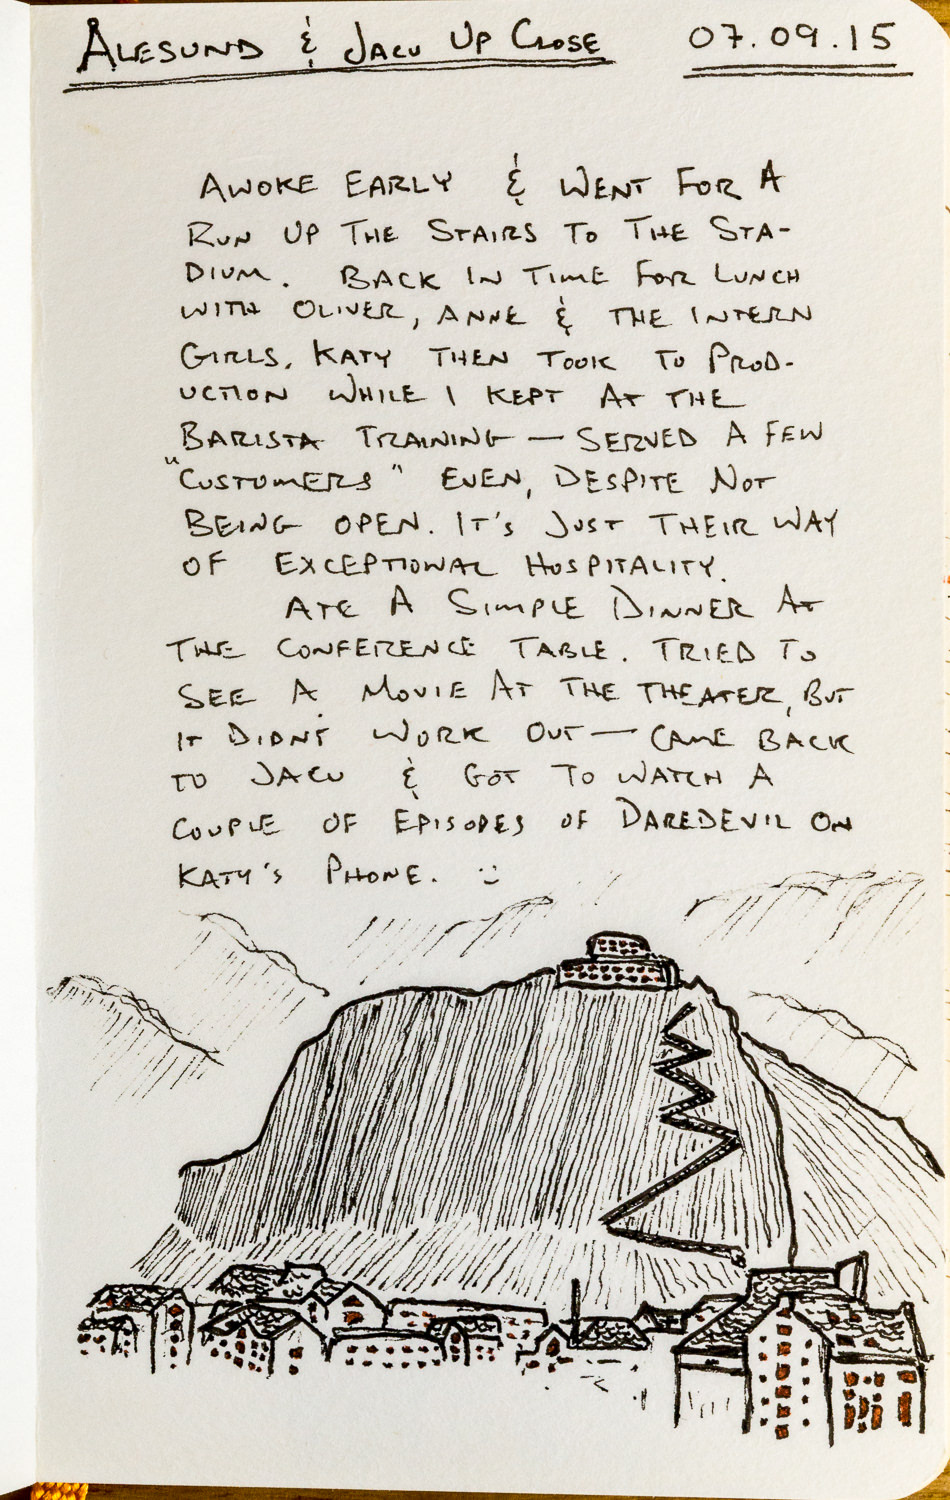 ALESUND & JACU UP CLOSE 07.09.15
AWOKE EARLY & WENT FOR A
RUN UP THE STAIRS TO THE STA-
DIUM. BACK IN TIME FOR LUNCH
WITH OLIVER, ANNE & THE INTERN
GIRLS. KATY THEN TOOK TO PROD-
UCTION WHILE I KEPT AT THE
BARISTA TRAINING — SERVED A FEW
"CUSTOMERS" EVEN, DESPITE NOT
BEING OPEN. IT'S JUST THEIR WAY
OF EXCEPTIONAL HOSPITALITY.
ATE A SIMPLE DINNER AT
THE CONFERENCE TABLE. TRIED TO
SEE A MOVIE AT THE THEATER, BUT
IT DIDN'T WORK OUT — CAME BACK
TO JACU & GOT TO WATCH A
COUPLE OF EPISODES OF DAREDEVIL ON
KATY'S PHONE. :)